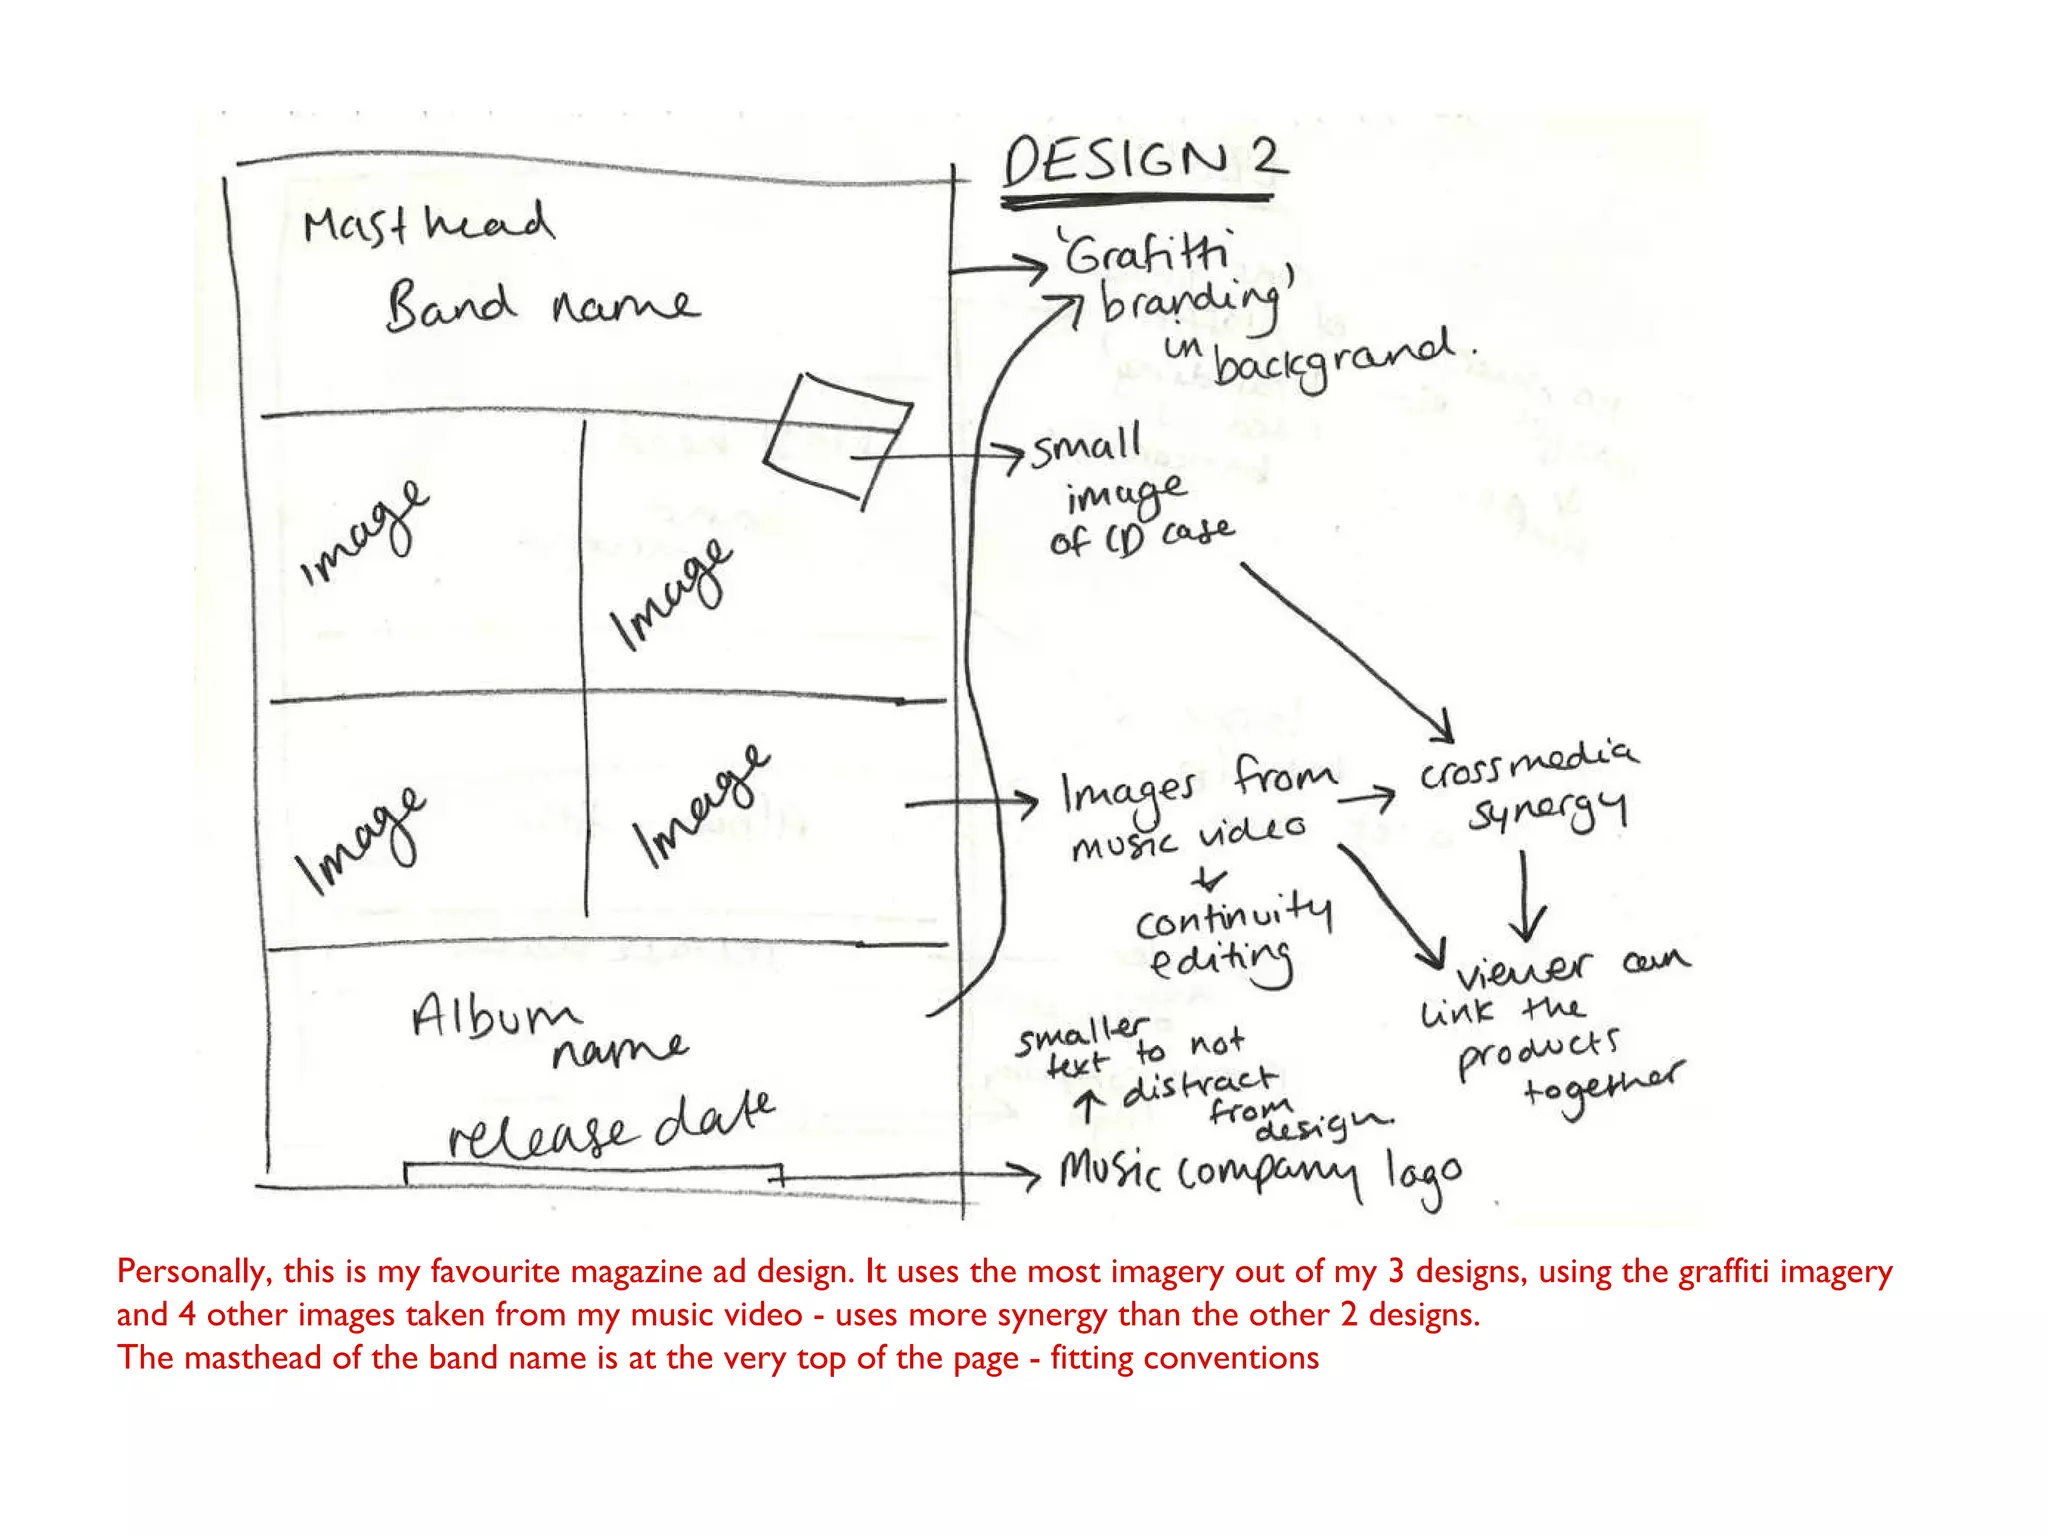 DESIGN 2
Masthead
Band name
Image
Image
Image
Image
Album
name
release date
'Grafitti
branding'
in
background.
small
image
of CD case
Images from
music video
continuity
editing
crossmedia
synergy
viewer can
link the
products
together
smaller
text to not
distract
from
design.
Music company logo
Personally, this is my favourite magazine ad design. It uses the most imagery out of my 3 designs, using the graffiti imagery
and 4 other images taken from my music video - uses more synergy than the other 2 designs.
The masthead of the band name is at the very top of the page - fitting conventions